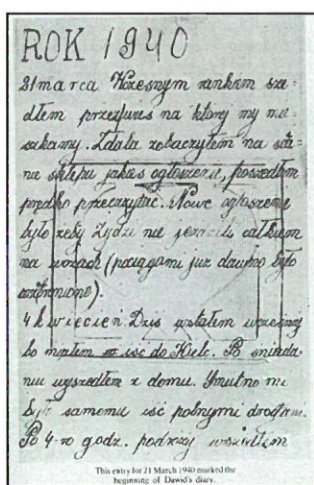 ROK 1940
21 marca Wczesnym rankiem sze-
dłem przez wieś na której my mie-
szkamy. Zdala zobaczyłem na ścia-
nie sklepu jakieś ogłoszenie, poszedłem
prędko przeczytać. Nowe ogłoszenie
było żeby Żydzi nie jeździli całkiem
na wozach (pociągami już dawno było
wzbronione).
4 kwiecień Dziś wstałem wcześniej
bo miałem iść do Kielc. Po śniada-
niu wyszedłem z domu. Smutno mi
było samemu iść polnymi drogami.
Po 4-ro godz. podróży
This entry for 21 March 1940 marked the
beginning of Dawid's diary.